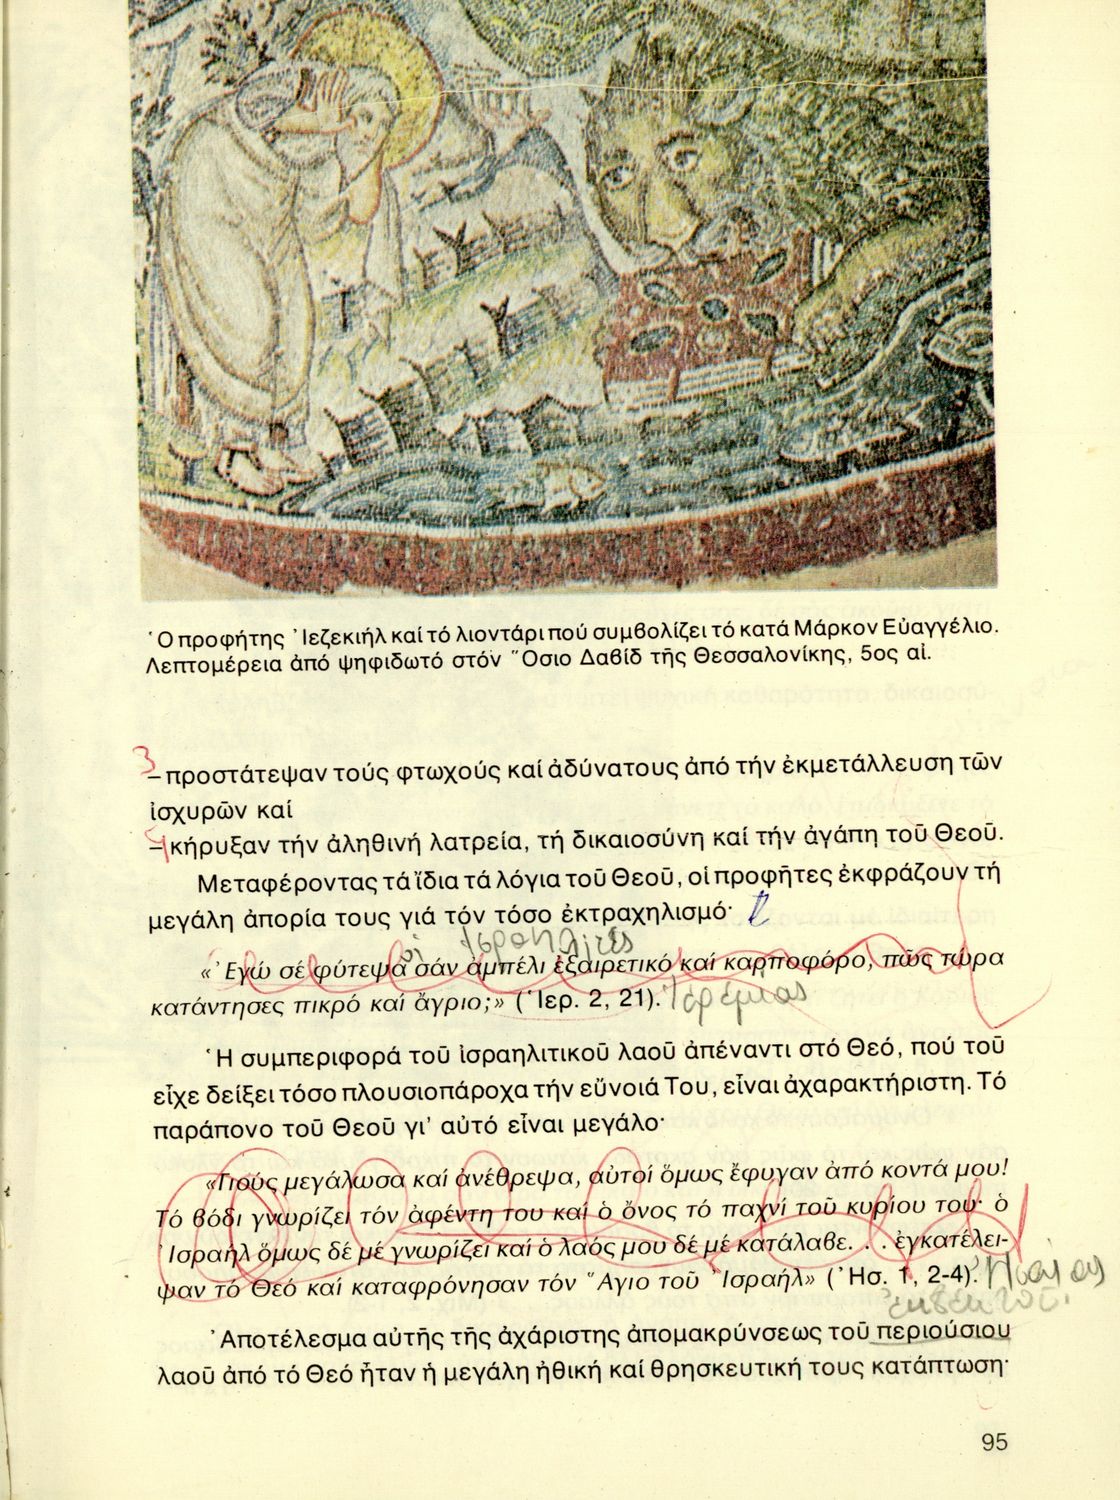 Ὁ προφήτης Ἰεζεκιήλ καί τό λιοντάρι πού συμβολίζει τό κατά Μάρκον Εὐαγγέλιο.
Λεπτομέρεια ἀπό ψηφιδωτό στόν Ὅσιο Δαβίδ τῆς Θεσσαλονίκης, 5ος αἰ.
3
– προστάτεψαν τούς φτωχούς καί ἀδύνατους ἀπό τήν ἐκμετάλλευση τῶν
ἰσχυρῶν καί
4
– κήρυξαν τήν ἀληθινή λατρεία, τή δικαιοσύνη καί τήν ἀγάπη τοῦ Θεοῦ.
Μεταφέροντας τά ἴδια τά λόγια τοῦ Θεοῦ, οἱ προφῆτες ἐκφράζουν τή
μεγάλη ἀπορία τους γιά τόν τόσο ἐκτραχηλισμό·
οἱ Ἰσραηλίτες
«Ἐγώ σέ φύτεψα σάν ἀμπέλι ἐξαιρετικό καί καρποφόρο, πῶς τώρα
κατάντησες πικρό καί ἄγριο;» (Ἰερ. 2, 21). Ἱερεμίας
Ἡ συμπεριφορά τοῦ ἰσραηλιτικοῦ λαοῦ ἀπέναντι στό Θεό, πού τοῦ
εἶχε δείξει τόσο πλουσιοπάροχα τήν εὔνοιά Του, εἶναι ἀχαρακτήριστη. Τό
παράπονο τοῦ Θεοῦ γι' αὐτό εἶναι μεγάλο·
«Γιούς μεγάλωσα καί ἀνέθρεψα, αὐτοί ὅμως ἔφυγαν ἀπό κοντά μου!
Τό βόδι γνωρίζει τόν ἀφέντη του καί ὁ ὄνος τό παχνί τοῦ κυρίου του· ὁ
Ἰσραήλ ὅμως δέ μέ γνωρίζει καί ὁ λαός μου δέ μέ κατάλαβε. . . ἐγκατέλει-
ψαν τό Θεό καί καταφρόνησαν τόν Ἅγιο τοῦ Ἰσραήλ» (Ἠσ. 1, 2-4). Ἠσαίας
ἐκλεκτοῦ.
Ἀποτέλεσμα αὐτῆς τῆς ἀχάριστης ἀπομακρύνσεως τοῦ περιούσιου
λαοῦ ἀπό τό Θεό ἦταν ἡ μεγάλη ἠθική καί θρησκευτική τους κατάπτωση·
95